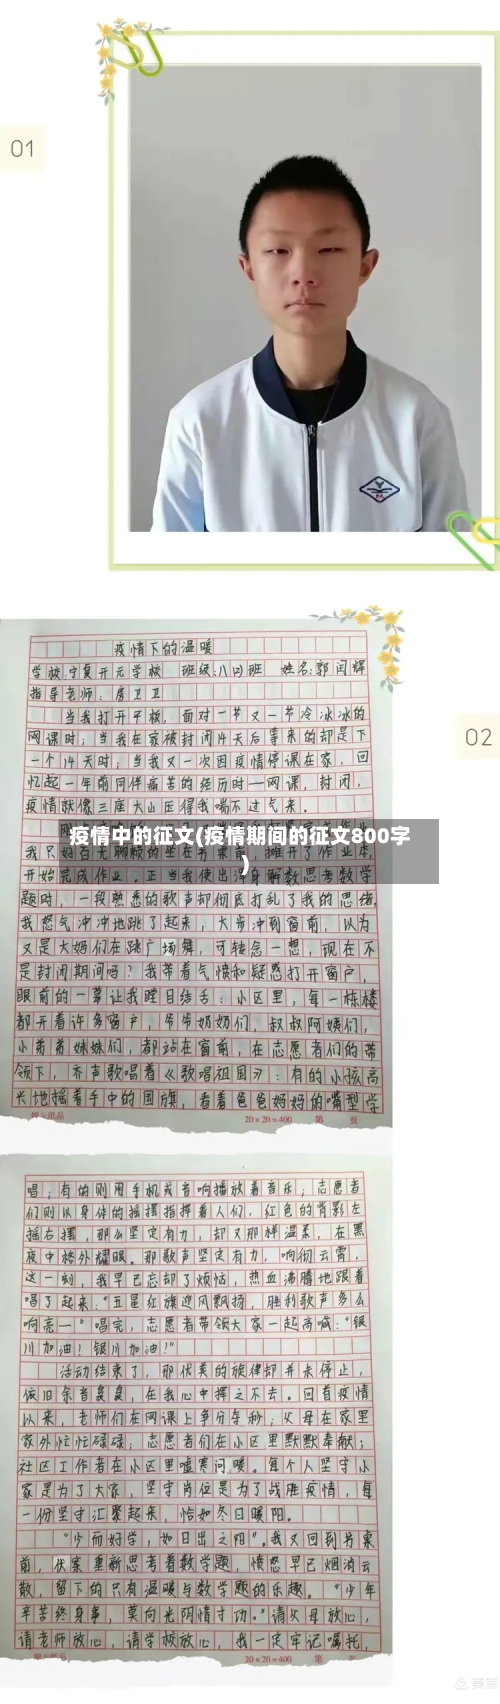 01
疫情下的温暖
学校:宁夏开元学校 班级:八(2)班 姓名:郭闰辉
指导老师:房卫卫
当我打开平板,面对一节又一节冷冰冰的
网课时;当我在家被封闭14天后等来的却是下
一个14天时;当我又一次因疫情停课在家,回
忆起一年前同伴痛苦的经历时—网课,封闭,
疫情就像三座大山压得我喘不过气来。
疫情中的征文(疫情期间的征文800字
)
我只好百无聊赖的坐在书桌前,摊开了作业本,
开始完成作业。正当我使出浑身解数思考数学
题时,一段熟悉的歌声却彻底打乱了我的思绪,
我怒气冲冲地跳了起来,大步冲到窗前,以为
又是大妈们在跳广场舞,可转念一想,现在不
是封闭期间吗?我带着气愤和疑惑打开窗户,
眼前的一幕让我瞠目结舌:小区里,每一栋楼
都开着许多窗户,爷爷奶奶们,叔叔阿姨们,
小弟弟妹妹们,都站在窗前,在志愿者们的带
领下,齐声歌唱着《歌唱祖国》:有的小孩高
长地摇着手中的国旗,看着爸爸妈妈的嘴型学
20×20=400 第 页
02
唱;有的则用手机或音响播放着音乐;志愿者
们则以身体的摇摆指挥着人们,红色的背影左
摇右摆,那么坚定有力,却又那样温柔,在黑
夜中格外耀眼。那歌声坚定有力,响彻云霄,
这一刻,我早已忘却了烦恼,热血沸腾地跟着
唱了起来:“五星红旗迎风飘扬,胜利歌声多么
响亮—”唱完,志愿者带领大家一起高喊:“银
川加油!银川加油!”
活动结束了,那优美的旋律却并未停止,
依旧余音袅袅,在我心中挥之不去。回首疫情
以来,老师们在网课上争分夺秒;父母在家里
家外忙忙碌碌;志愿者们在小区里默默奉献;
社区工作者在小区里嘘寒问暖。每个人坚守小
家是为了大家,坚守岗位是为了战胜疫情,每
一份坚守汇聚起来,恰如冬日暖阳。
“少而好学,如日出之阳”。我又回到书桌
前,伏案重新思考着数学题,愤怒早已烟消云
散,留下的只有温暖与数学题的乐趣。“少年
辛苦终身事,莫向光阴惰寸功。”请父母放心,
请老师放心,请学校放心,我一定牢记嘱托,
20×20=400 第 页
美篇